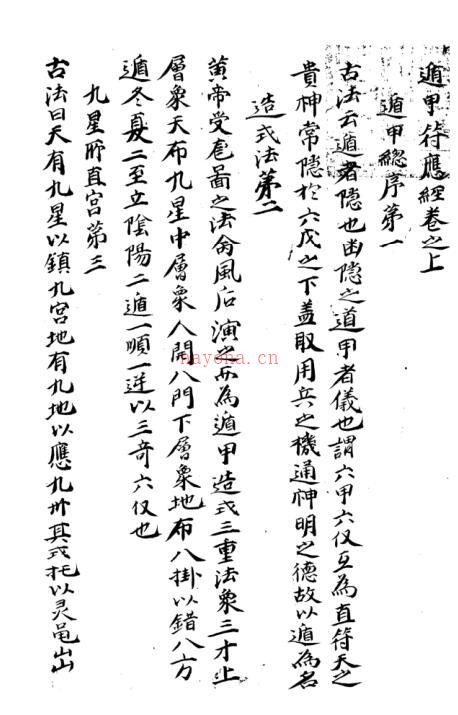 遁甲符應經卷之上
遁甲總序第一
古法云遁者隐也幽隐之道甲者儀也謂六甲六仪互為直符天之
貴神常隐於六戊之下盖取用兵之機通神明之德故以遁為名
造式法第二
黄帝受圖之法命風后演之而為遁甲造式三重法象三才上
層象天布九星中層象人開八門下層象地布八掛以錯八方
遁冬夏二至立陰陽二遁一順一逆以三奇六仪也
九星所直宫第三
古法曰天有九星以鎮九宫地有九地以應九州其式托以灵黾
nayona.cn